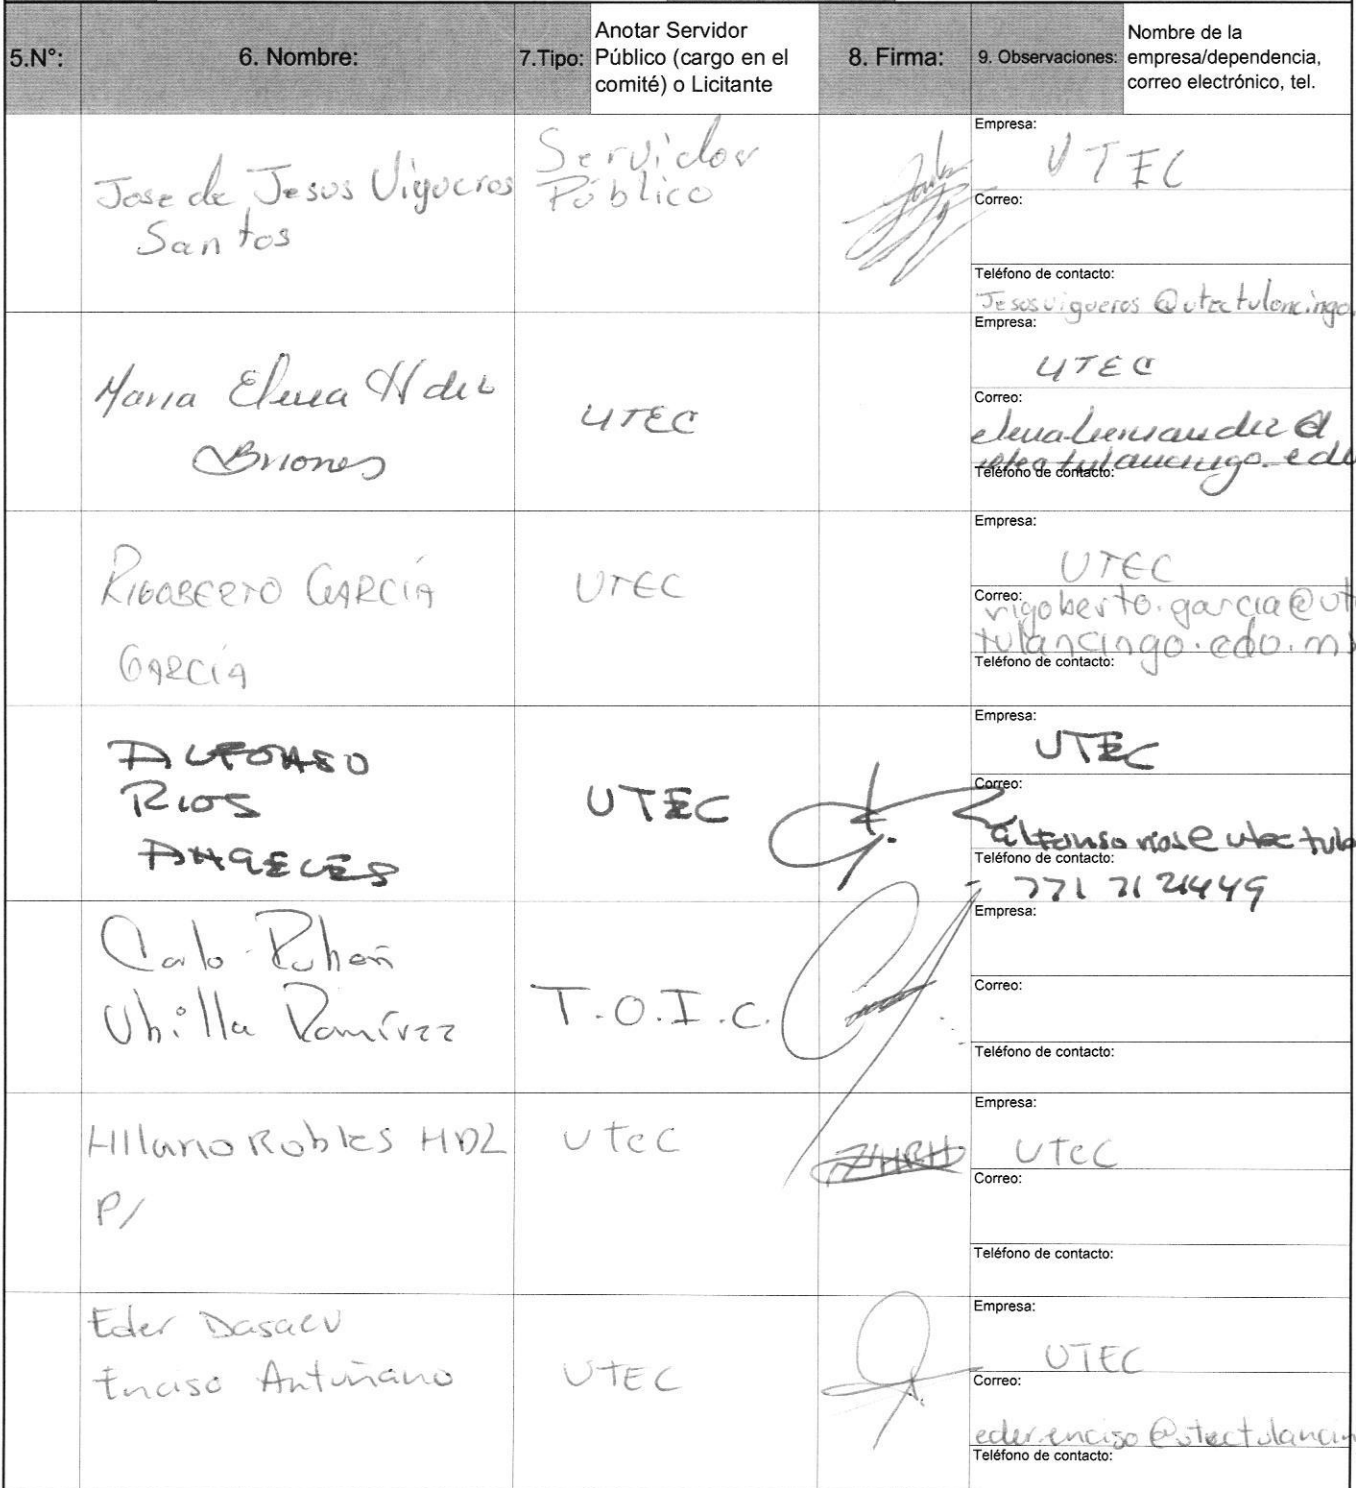 5.N°:
6. Nombre:
7.Tipo:
Anotar Servidor
Público (cargo en el
comité) o Licitante
8. Firma:
9. Observaciones:
Nombre de la
empresa/dependencia,
correo electrónico, tel.
Jose de Jesus Vigueros
Santos
Servidor
Público
Empresa:
UTEC
Correo:
Teléfono de contacto:
Jesusvigueros @utectulancingo.
Maria Elena Hdez
Briones
UTEC
Empresa:
UTEC
Correo:
elenahernandez @
utectulancingo.edu
Teléfono de contacto:
RIGOBERTO GARCÍA
GARCÍA
UTEC
Empresa:
UTEC
Correo:
rigoberto.garcia@ut
tulancingo.edu.mx
Teléfono de contacto:
ALFONSO
RIOS
ANGELES
UTEC
Empresa:
UTEC
Correo:
alfonso rios@utectula
Teléfono de contacto:
771 71 21449
Carlo Rubén
Ubilla Ramírez
T.O.I.C.
Empresa:
Correo:
Teléfono de contacto:
Hilario Robles HDZ
P/
UTeC
ZHRH
Empresa:
UTeC
Correo:
Teléfono de contacto:
Eder Dasaev
Enciso Antuñano
UTEC
Empresa:
UTEC
Correo:
eder.enciso@utectulancin
Teléfono de contacto: